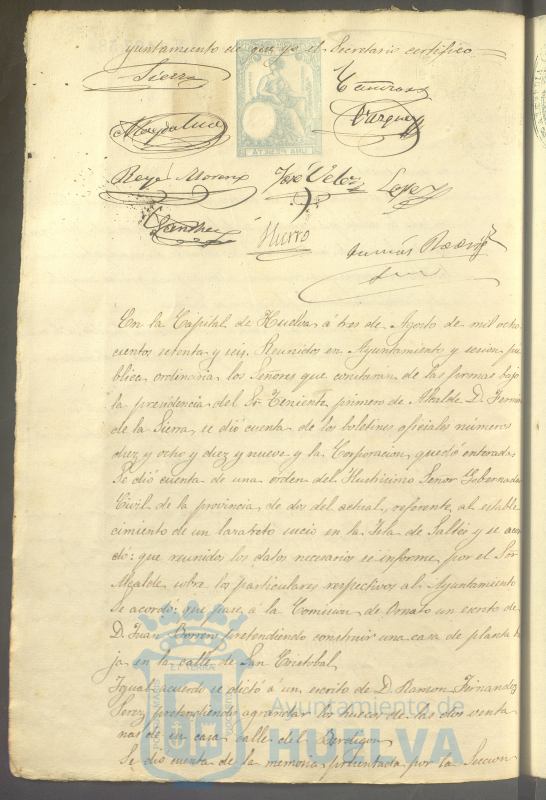 yuntamiento de que yo el Secretario certifico
Sierra
Magdalena
Vazquez
Reyes Moreno
José Velez
Lopez
Sanchez
Hierro
Tomás
En la Capital de Huelva á tres de Agosto de mil ocho
cientos setenta y seis. Reunidos en Ayuntamiento y sesion pú
blica ordinaria los Señores que constaran de las firmas bajo
la presidencia del Sr. Teniente primero de Alcalde D. Fermin
de la Sierra, se dió cuenta de los boletines oficiales números
diez y ocho y diez y nueve y la Corporacion quedó enterada
Se dió cuenta de una orden del Ilustrisimo Señor Gobernador
Civil de la provincia de dos del actual, referente al estable
cimiento de un lazareto sucio en la Isla de Saltés y se acor
dó: que reunidos los datos necesarios se informe por el Sor
Alcalde sobre los particulares respectivos al Ayuntamiento
Se acordó: que pase á la Comision de Ornato un escrito de
D. Juan Borrero pretendiendo construir una casa de planta ba
ja en la calle de San Cristobal
Igual acuerdo se dictó á un escrito de D. Ramon Fernandez
Perez pretendiendo agrandar los huecos de las dos venta
nas de su casa calle del Berdigon
Se dió cuenta de la memoria presentada por la Seccion
Ayuntamiento de
HUELVA